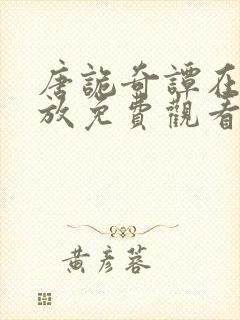 唐詭奇譚在
放免費觀看
黃彥蓉